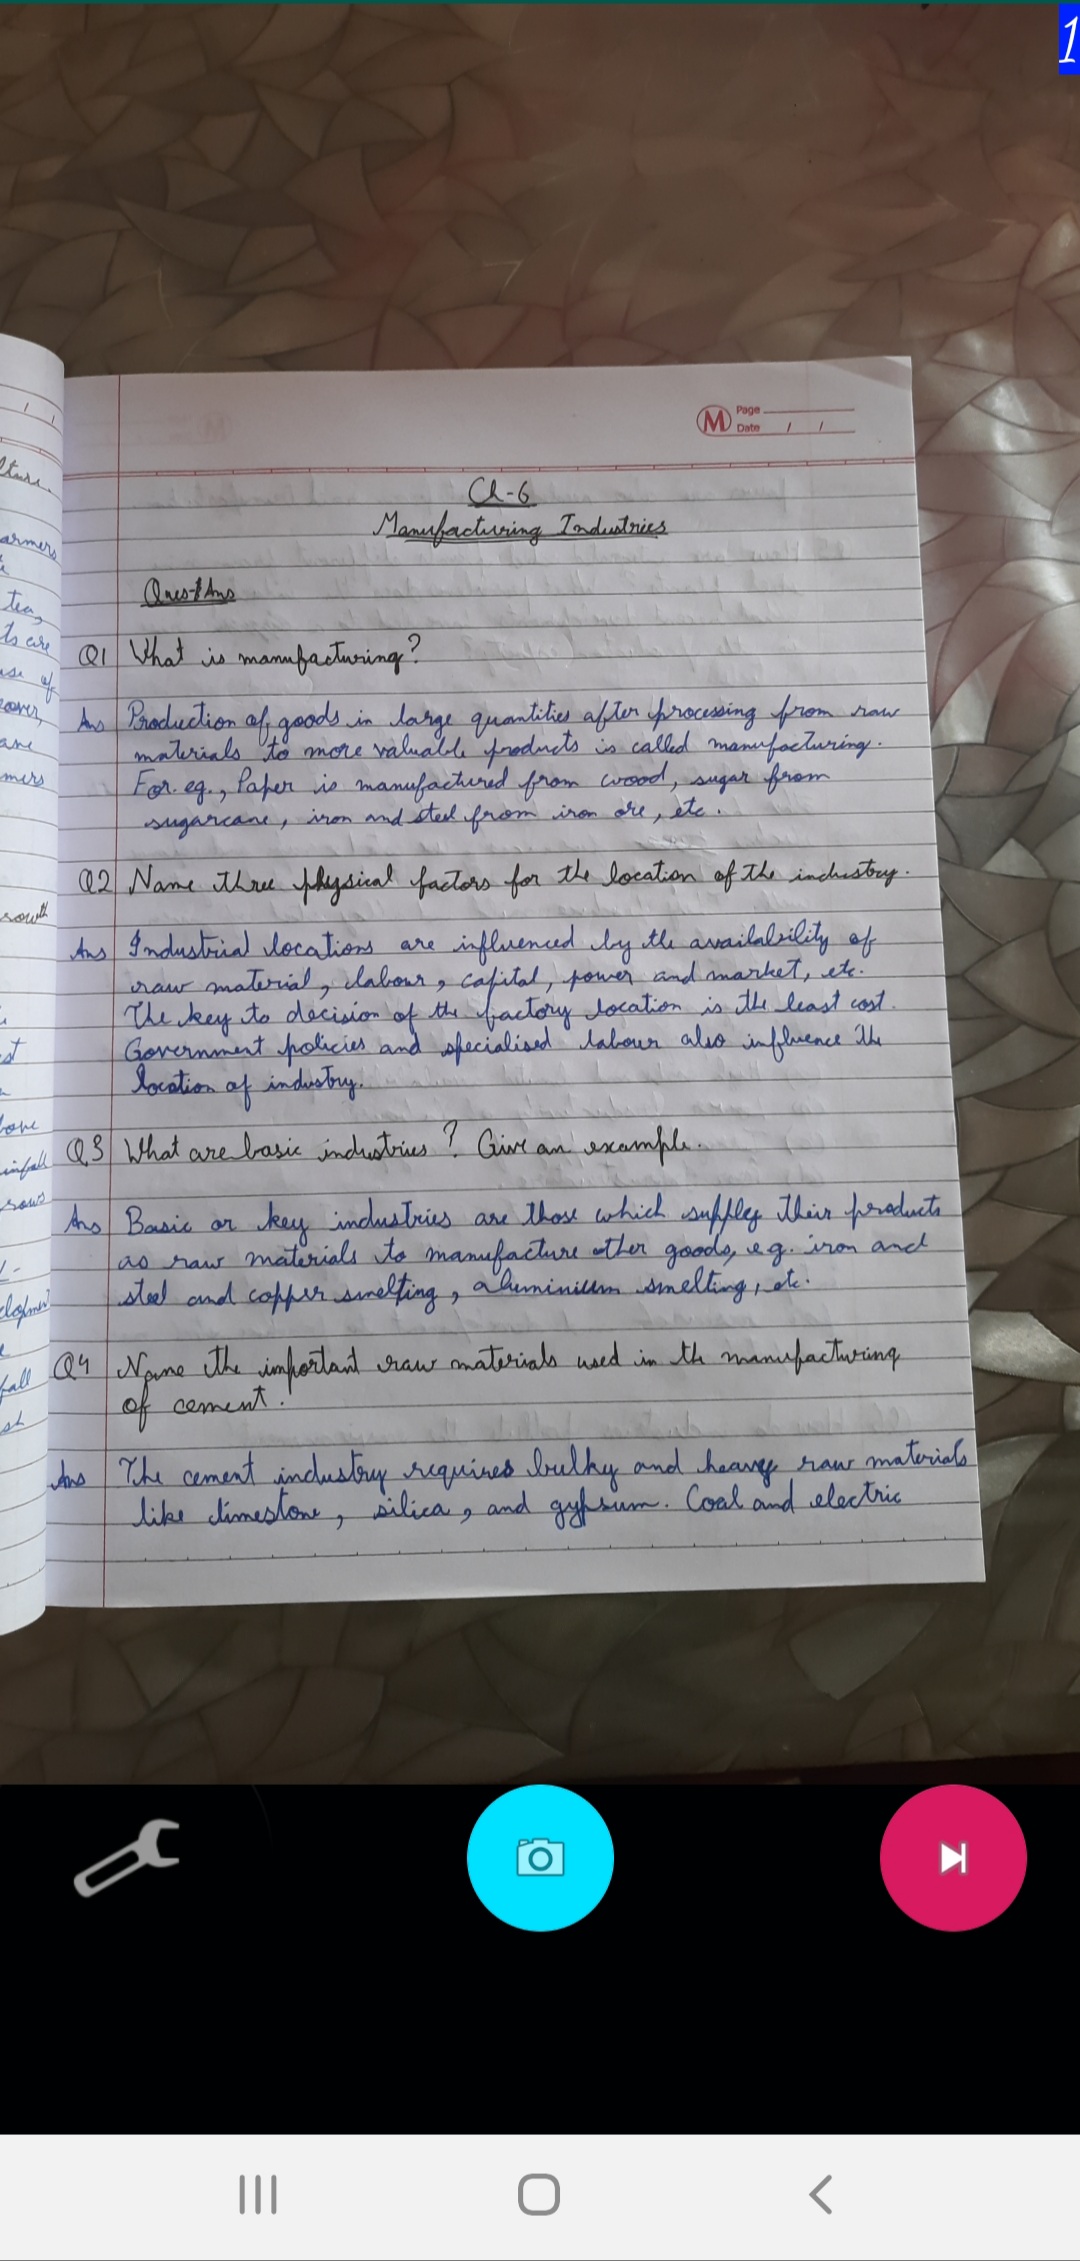 1
M Page
Date / /
Ch-6
Manufacturing Industries
Ques+Ans
Q1 What is manufacturing?
Ans Production of goods in large quantities after processing from raw
materials to more valuable products is called manufacturing.
For. eg., Paper is manufactured from wood, sugar from
sugarcane, iron and steel from iron ore, etc.
Q2 Name three physical factors for the location of the industry.
Ans Industrial locations are influenced by the availability of
raw material, labour, capital, power and market, etc.
The key to decision of the factory location is the least cost.
Government policies and specialised labour also influence the
location of industry.
Q3 What are basic industries? Give an example.
Ans Basic or key industries are those which supply their products
as raw materials to manufacture other goods, e.g. iron and
steel and copper smelting, aluminium smelting, etc.
Q4 Name the important raw materials used in the manufacturing
of cement.
Ans The cement industry requires bulky and heavy raw materials
like limestone, silica, and gypsum. Coal and electric